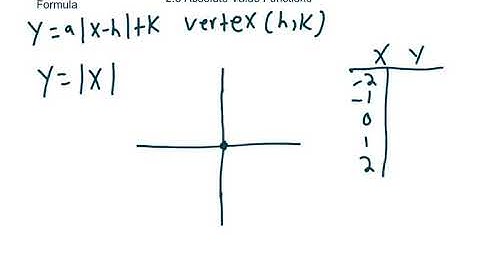 Formula
Absolute Value Functions
y=a|x-h|+k vertex (h,k)
y=|x|
x y
-2
-1
0
1
2